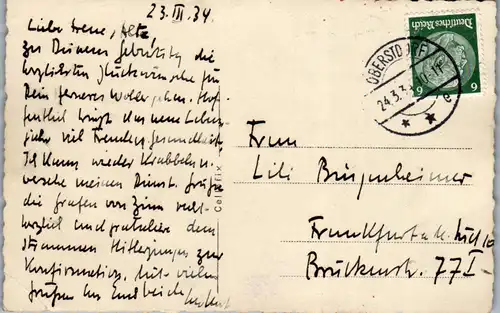 23.III.34
Liebe Irene,
zu Deinem Geburtstag die
herzlichsten Glückwünsche für
Dein ferneres Wohlergehen. Hof-
fentlich bringt das neue Lebens-
jahr viel Freude u. Gesundheit.
Ich kann wieder krabbeln u.
versehe meinen Dienst. Grüße
die
herzlich und gratuliere dem
strammen Hitlerjungen zur
Konfirmation. Mit vielen
Grüßen an Euch beide
Cellofix
Deutsches Reich
6 6
OBERSTDORF
24.3.3
c
Frau
Lili
Frankfurt a.M.
Brückenstr. 77 I